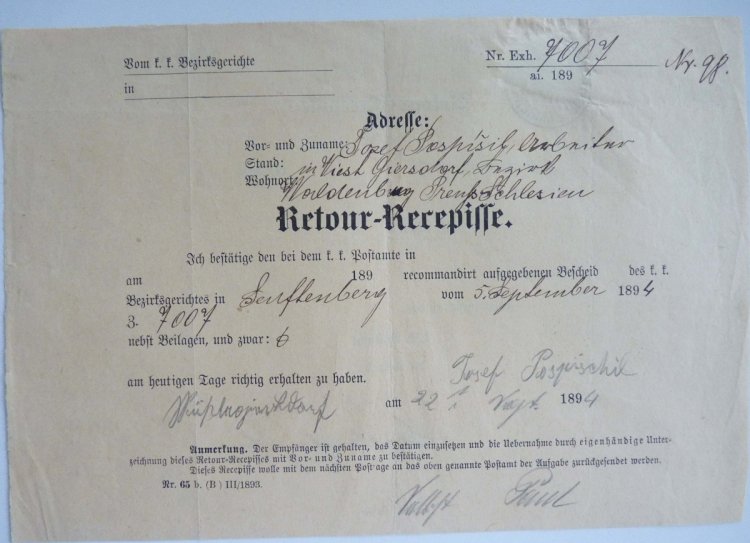 Vom k. k. Bezirksgerichte
in
Nr. Exh. 7007
ai. 189
Nr. 98.
Adresse:
Vor- und Zuname: Josef Pospišil, Arbeiter
Stand:
Wohnort: in Wüst Giersdorf, Bezirk
Waldenburg Preuß-Schlesien
Retour-Recepisse.
Ich bestätige den bei dem k. k. Postamte in
am 189 recommandirt aufgegebenen Bescheid des k. k.
Bezirksgerichtes in Senftenberg vom 5. September 1894
Z. 7007
nebst Beilagen, und zwar:
Josef Pospischil
am heutigen Tage richtig erhalten zu haben.
Wüstegiersdorf am 22 1894
Anmerkung. Der Empfänger ist gehalten, das Datum einzusetzen und die Uebernahme durch eigenhändige Unter-
zeichnung dieses Retour-Recepisses mit Vor- und Zuname zu bestätigen.
Dieses Recepisse wolle mit dem nächsten Postage an das oben genannte Postamt der Aufgabe zurückgesendet werden.
Nr. 65 b. (B) III/1893.